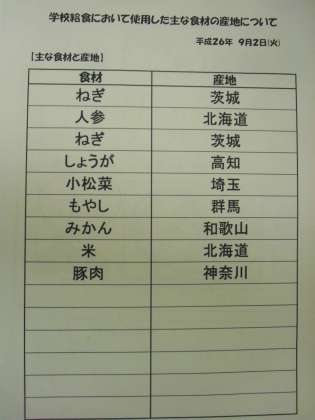 学校給食において使用した主な食材の産地について
平成26年 9月2日(火)
【主な食材と産地】
食材 産地
ねぎ 茨城
人参 北海道
ねぎ 茨城
しょうが 高知
小松菜 埼玉
もやし 群馬
みかん 和歌山
米 北海道
豚肉 神奈川